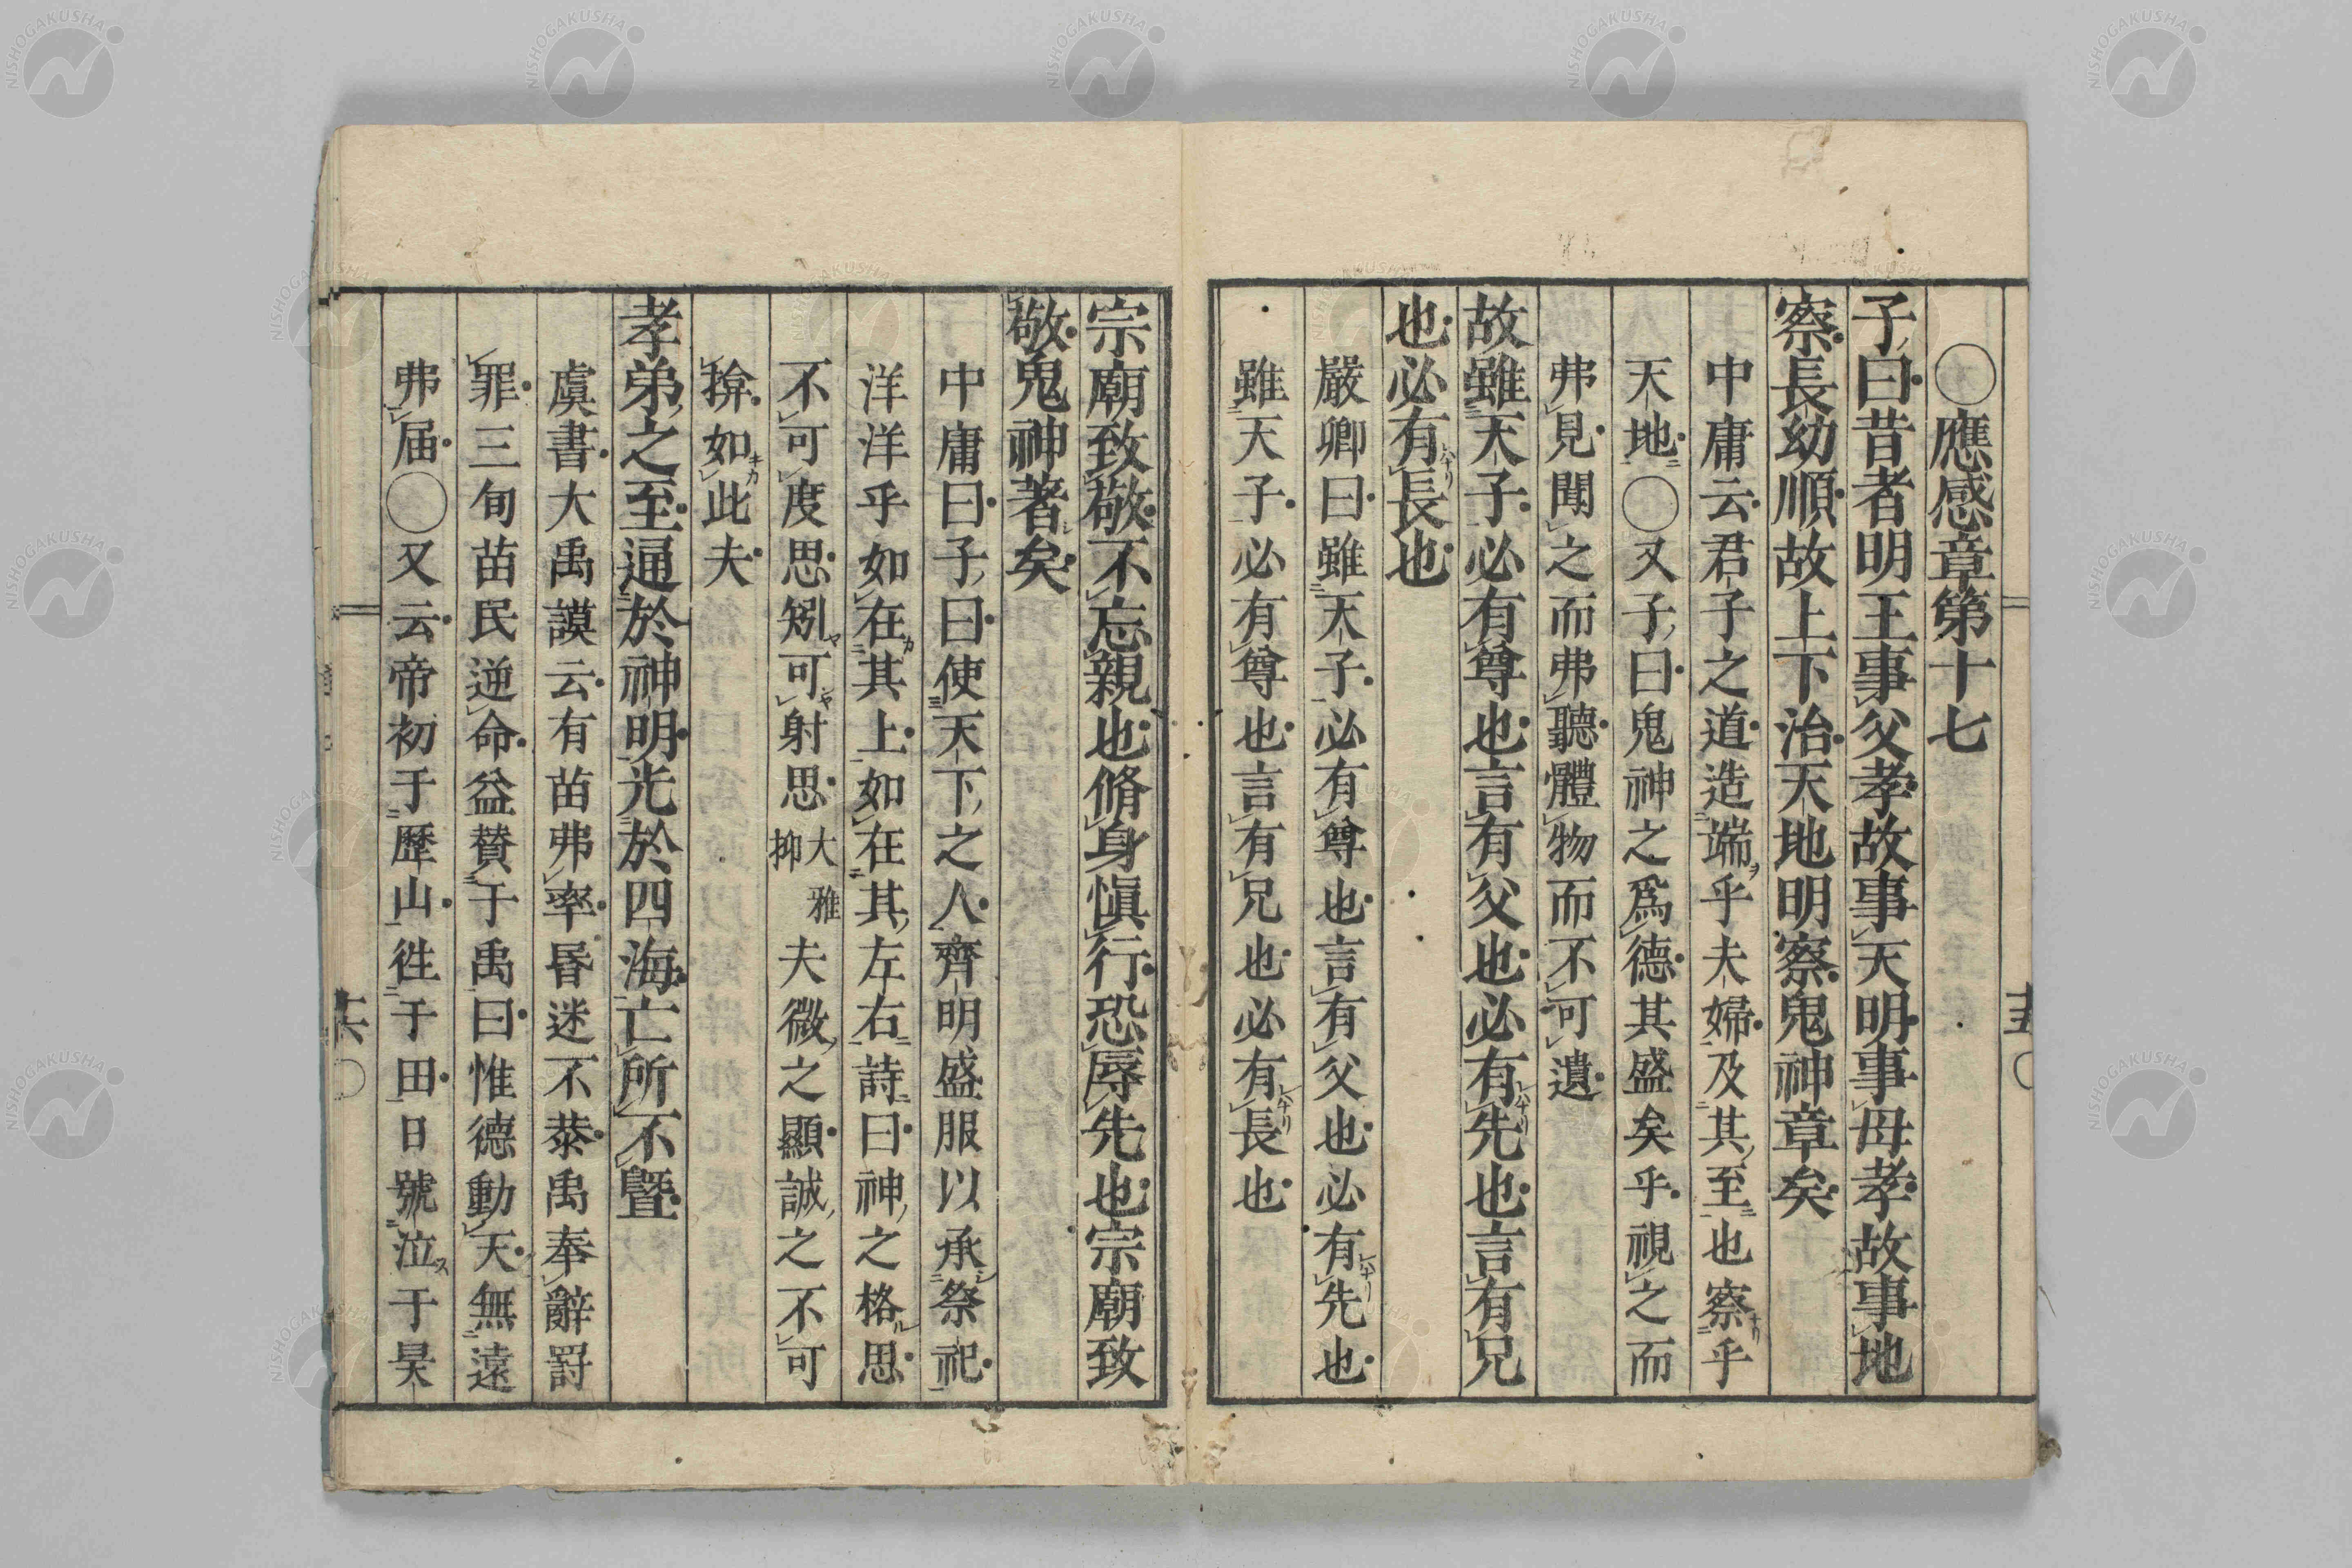 〇應感章第十七
子曰昔者明王事父孝故事天明事母孝故事地
察長幼順故上下治天地明察鬼神章矣
中庸云君子之道造端乎夫婦及其至也察乎
天地〇又子曰鬼神之爲德其盛矣乎視之而
弗見聞之而弗聽體物而不可遺
故雖天子必有尊也言有父也必有先也言有兄
也必有長也
嚴卿曰雖天子必有尊也言有父也必有先也
雖天子必有尊也言有兄也必有長也
宗廟致敬不忘親也脩身愼行恐辱先也宗廟致
敬鬼神著矣
中庸曰子曰使天下之人齊明盛服以承祭祀
洋洋乎如在其上如在其左右詩曰神之格思
不可度思矧可射思大雅抑夫微之顯誠之不可
揜如此夫
孝弟之至通於神明光於四海亡所不曁
虞書大禹謨云有苗弗率昬迷不恭禹奉辭罸
罪三旬苗民逆命益賛于禹曰惟德動天無遠
弗届〇又云帝初于歷山徃于田日號泣于旻
十五
十六
NISHOGAKUSHA